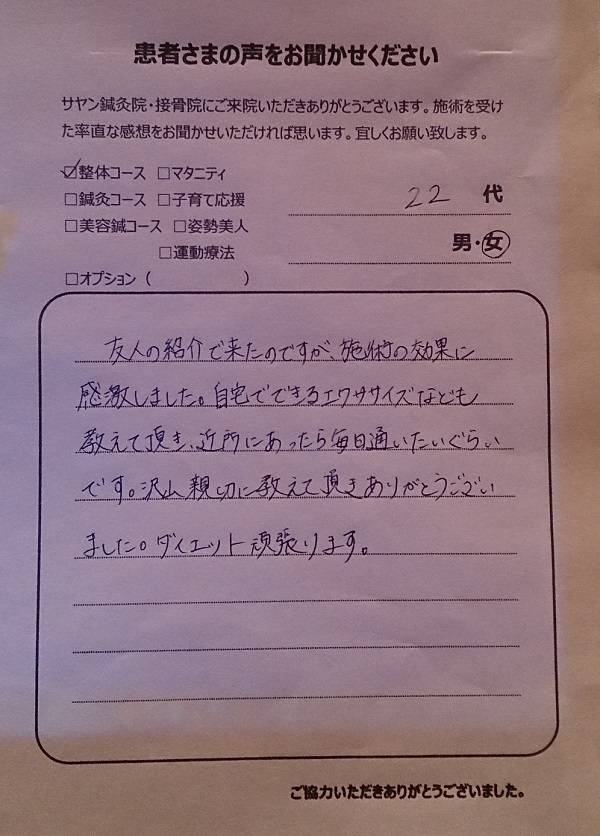 患者さまの声をお聞かせください
サヤン鍼灸院・接骨院にご来院いただきありがとうございます。施術を受け
た率直な感想をお聞かせいただければ思います。宜しくお願い致します。
☑整体コース □マタニティ
□鍼灸コース □子育て応援
22 代
□美容鍼コース □姿勢美人
男・女
□運動療法
□オプション（ ）
友人の紹介で来たのですが、施術の効果に
感激しました。自宅でできるエクササイズなども
教えて頂き、近所にあったら毎日通いたいぐらい
です。沢山親切に教えて頂きありがとうござい
ました。ダイエット頑張ります。
ご協力いただきありがとうございました。